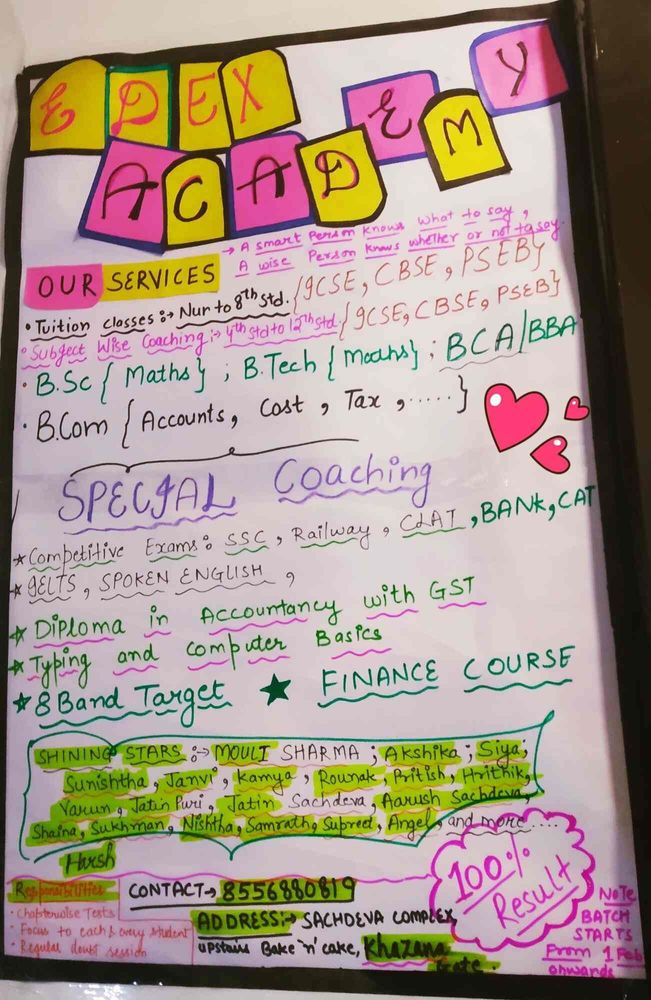 EDEX
ACADEMY
→ A smart Person knows what to say,
A wise Person knows whether or not to say.
OUR SERVICES
• Tuition classes :→ Nur to 8th Std. {ICSE, CBSE, PSEB}
• Subject Wise Coaching :→ 4th std to 12th std. {ICSE, CBSE, PSEB}
• B.Sc {Maths} ; B.Tech {Maths} ; BCA/BBA
• B.Com {Accounts, Cost, Tax, .....}
SPECIAL Coaching
★ Competitive Exams: SSC, Railway, CLAT, BANK, CAT
★ IELTS, SPOKEN ENGLISH,
★ Diploma in Accountancy with GST
★ Typing and computer Basics
★ 8 Band Target ★ FINANCE COURSE
SHINING STARS :→ MOULI SHARMA ; Akshika ; Siya,
Sunishtha, Janvi, Kamya, Rounak, Pritish, Hrithik,
Varun, Jatin Puri, Jatin Sachdeva, Aarush Sachdeva,
Shaina, Sukhman, Nishtha, Samrath, Supreet, Angel, and more ....
Harsh
100% Result
Responsibilities
• Chapterwise Tests
• Focus to each & every student
• Regular doubt session
CONTACT → 8556880819
ADDRESS :→ SACHDEVA COMPLEX
upstairs Bake 'n' cake, Khazana
Gate.
NOTE
BATCH
STARTS
From 1 Feb
onwards